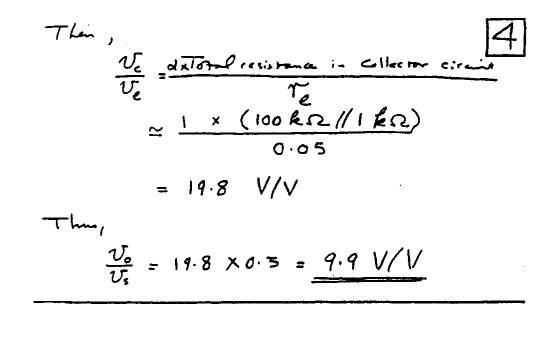 Then,
4
v_c/v_e = α×Total resistance in collector circuit / r_e
≃ 1 × (100 kΩ // 1 kΩ) / 0.05
= 19.8 V/V
Thus,
v_o/v_s = 19.8 × 0.5 = 9.9 V/V